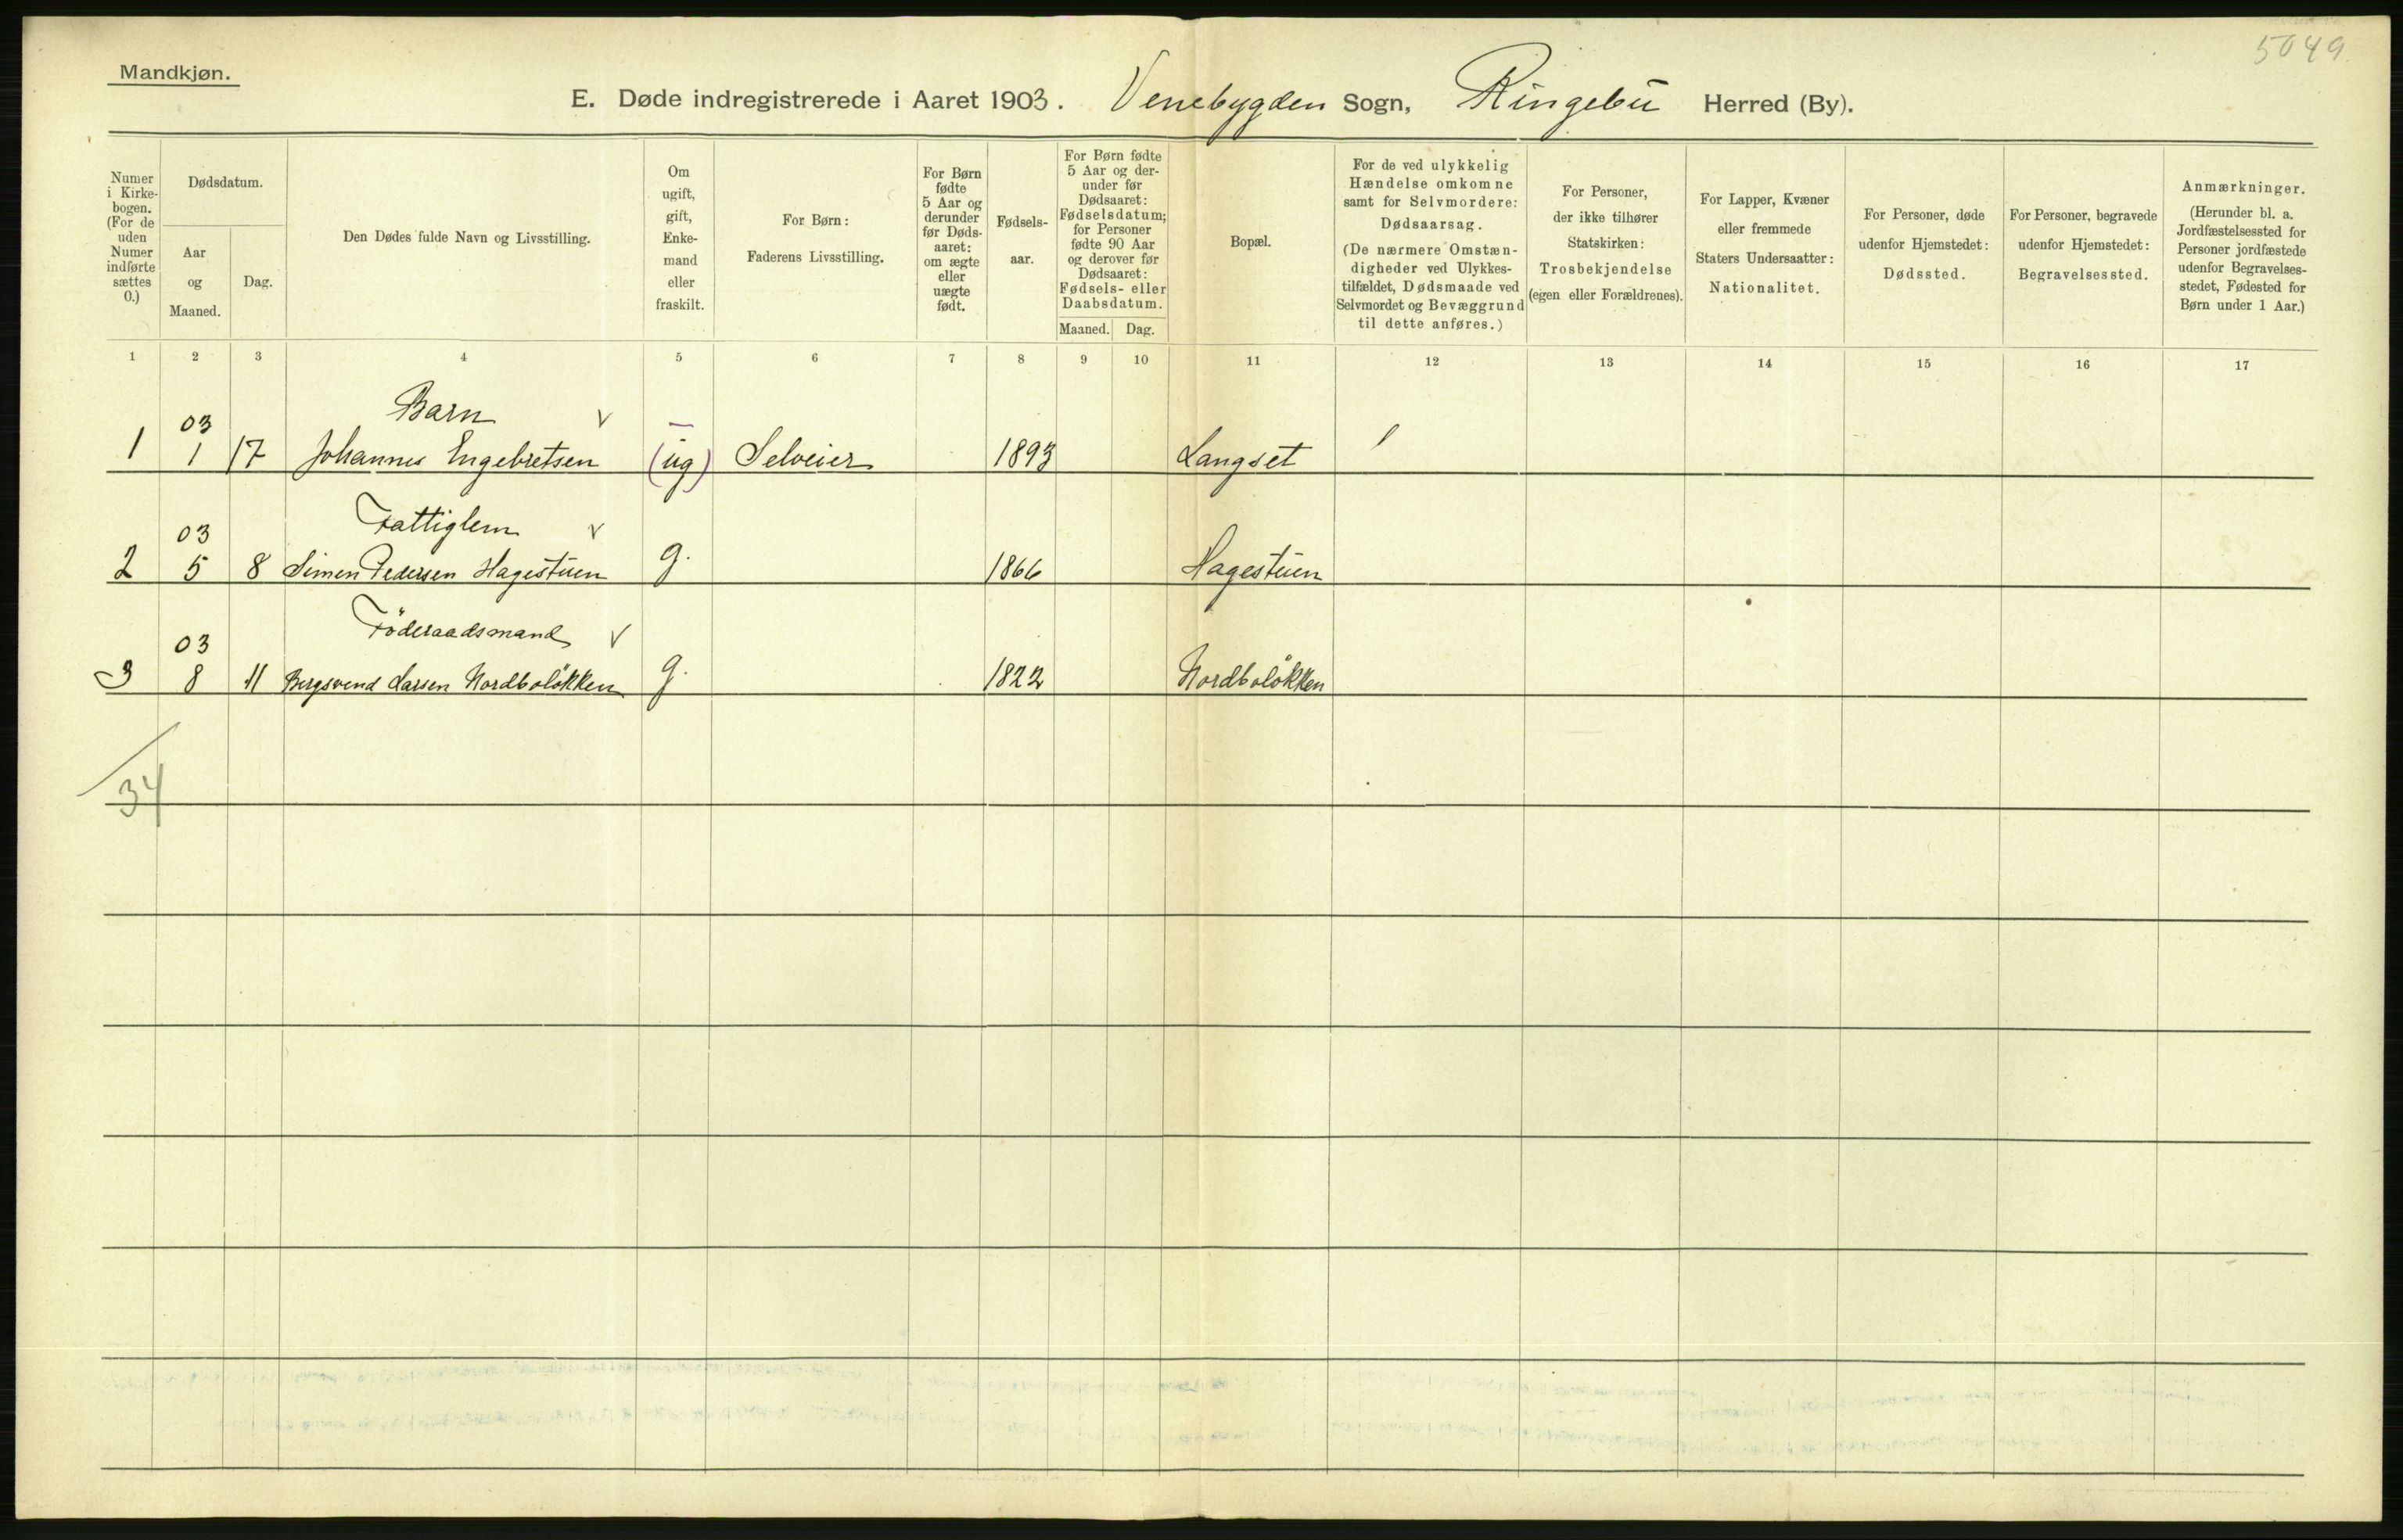 5049
Mandkjøn.
E. Døde indregistrerede i Aaret 1903. Venebygden Sogn, Ringebu Herred (By).
Numer i Kirke-bogen. (For de uden Numer indførte sættes 0.)
Dødsdatum.
Aar og Maaned.
Dag.
Den Dødes fulde Navn og Livsstilling.
Om ugift, gift, Enke-mand eller fraskilt.
For Børn: Faderens Livsstilling.
For Børn fødte 5 Aar og derunder før Døds-aaret: om ægte eller uægte født.
Fødsels-aar.
For Børn fødte 5 Aar og der-under før Dødsaaret: Fødselsdatum; for Personer fødte 90 Aar og derover før Dødsaaret: Fødsels- eller Daabsdatum.
Maaned. Dag.
Bopæl.
For de ved ulykkelig Hændelse omkomne samt for Selvmordere: Dødsaarsag. (De nærmere Omstæn-digheder ved Ulykkes-tilfældet, Dødsmaade ved Selvmordet og Bevæggrund til dette anføres.)
For Personer, der ikke tilhører Statskirken: Trosbekjendelse (egen eller Forældrenes).
For Lapper, Kvæner eller fremmede Staters Undersaatter: Nationalitet.
For Personer, døde udenfor Hjemstedet: Dødssted.
For Personer, begravede udenfor Hjemstedet: Begravelsessted.
Anmærkninger. (Herunder bl. a. Jordfæstelsessted for Personer jordfæstede udenfor Begravelses-stedet, Fødested for Børn under 1 Aar.)
1 2 3 4 5 6 7 8 9 10 11 12 13 14 15 16 17
03 Barn
1 1 17 Johannes Engebretsen (ug) Selveier 1893 Langset
03 Fattiglem
2 5 8 Simen Pedersen Hagestuen g. 1866 Hagestuen
03 Föderaadsmand
3 8 11 Bergsvend Larsen Nordboløkken g. 1822 Nordboløkken
34